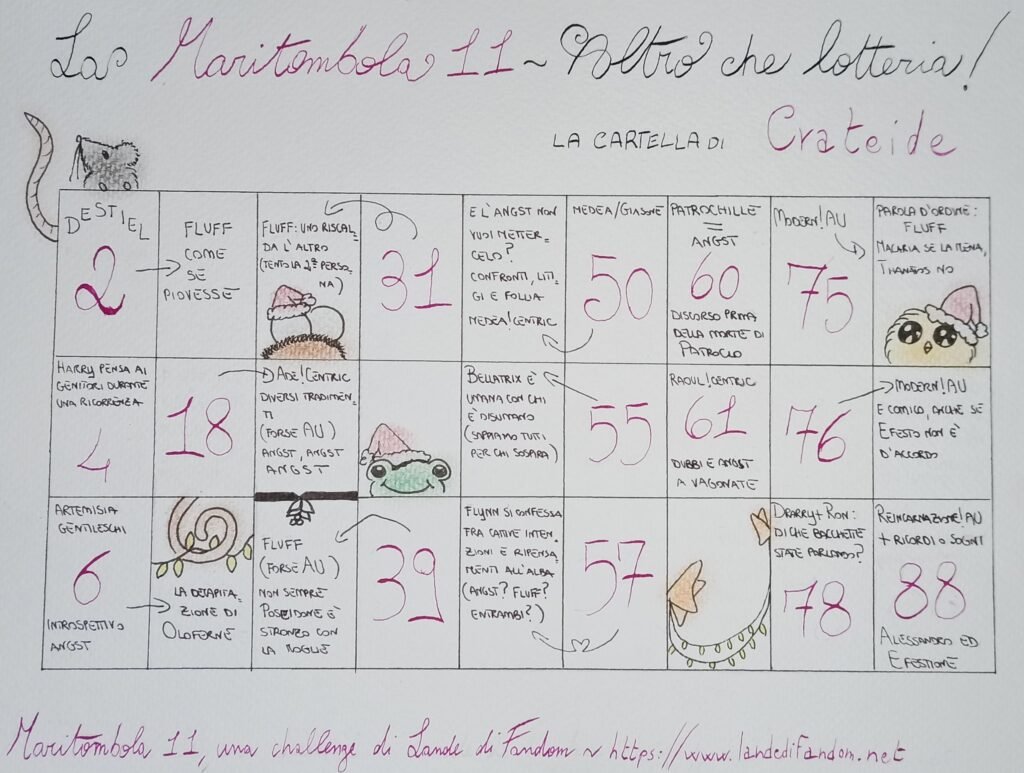 La Maritombola 11 ~ Altro che lotteria!
LA CARTELLA DI Crateide
DESTIEL
2
FLUFF
COME
SE
PIOVESSE
FLUFF: UNO RISCAL-
DA L'ALTRO
(TENTO LA 2ª PERSO-
NA)
31
E L'ANGST NON
VUOI METTER-
CELO?
CONFRONTI, LITI-
GI E FOLLIA
MEDEA!CENTRIC
MEDEA/GIASONE
50
PATROCHILLE
=
ANGST
60
DISCORSO PRIMA
DELLA MORTE DI
PATROCLO
MODERN!AU
75
PAROLA D'ORDINE:
FLUFF
MACARIA SE LA MENA,
THANATOS NO
HARRY PENSA AI
GENITORI DURANTE
UNA RICORRENZA
4
18
D ADE!CENTRIC
DIVERSI TRADIMEN-
TI
(FORSE AU)
ANGST, ANGST
ANGST
BELLATRIX È
UMANA CON CHI
È DISUMANO
(SAPPIAMO TUTTI
PER CHI SOSPIRA)
55
RAOUL!CENTRIC
61
DUBBI E ANGST
A VAGONATE
76
MODERN!AU
E COMICO, ANCHE SE
EFESTO NON È
D'ACCORDO
ARTEMISIA
GENTILESCHI
6
INTROSPETTIVO
ANGST
LA DECAPITA-
ZIONE DI
OLOFERNE
FLUFF
(FORSE AU)
NON SEMPRE
POSEIDONE È
STRONZO CON
LA MOGLIE
39
FLYNN SI CONFESSA
FRA CATTIVE INTEN-
ZIONI E RIPENSA-
MENTI ALL'ALBA
(ANGST? FLUFF?
ENTRAMBI?)
57
DRARRY + RON:
DI CHE BACCHETTE
STATE PARLANDO?
78
REINCARNAZIONE!AU
+ RICORDI O SOGNI
88
ALESSANDRO ED
EFESTIONE
Maritombola 11, una challenge di Lande di Fandom ~ https://www.landedifandom.net